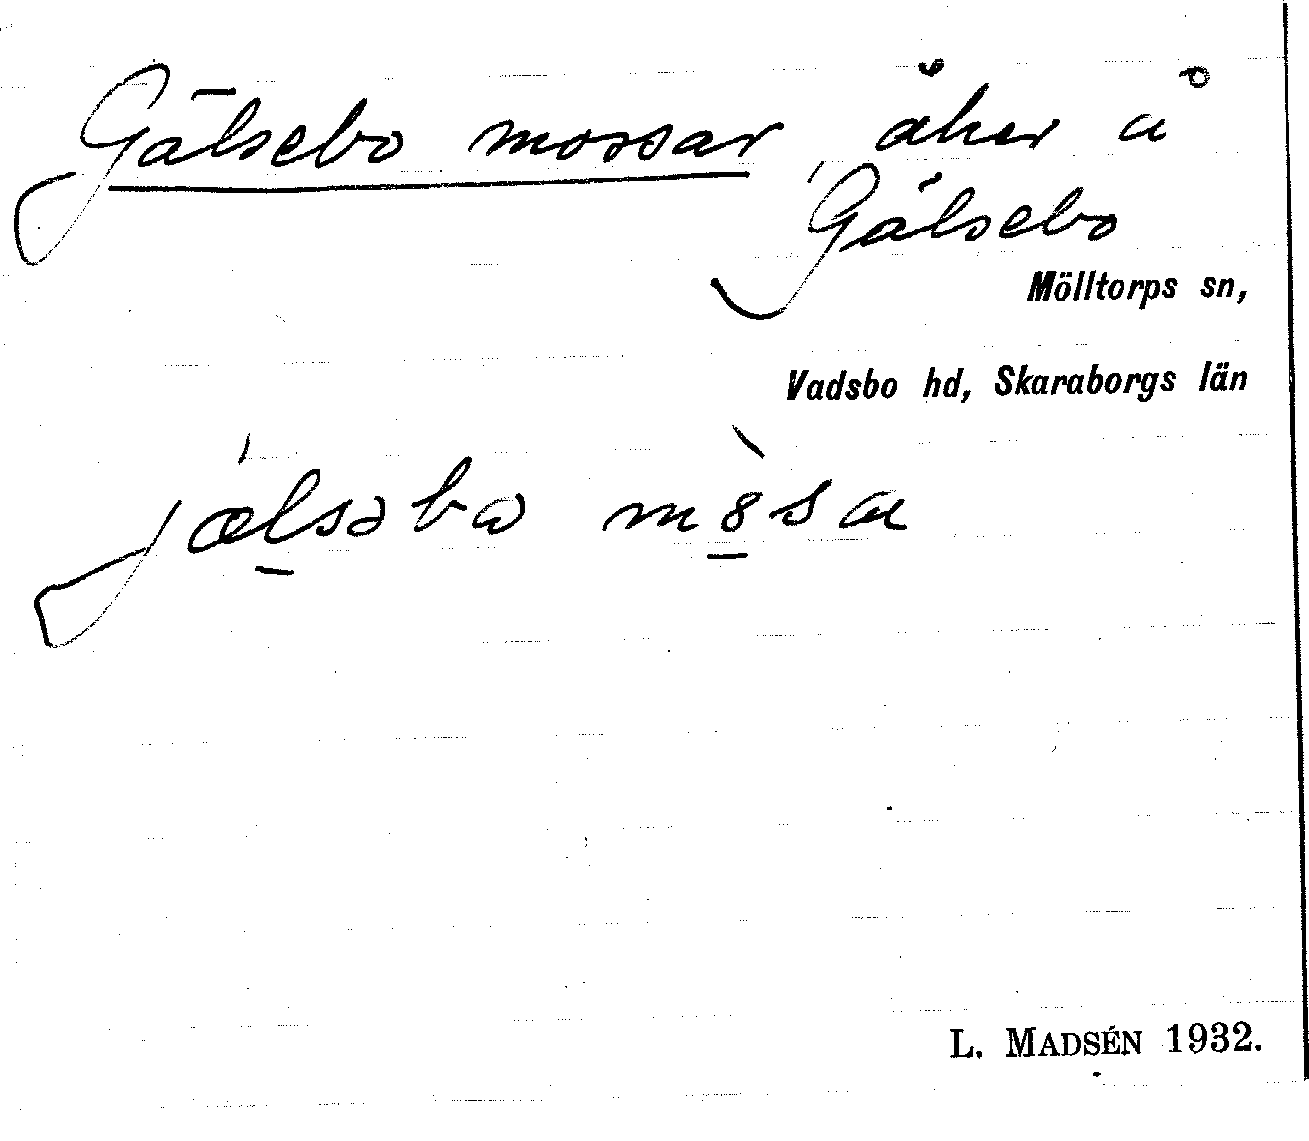 Gälsebo mossar åker å
Gälsebo
Mölltorps sn,
Vadsbo hd, Skaraborgs län
jælsəbo m8sa
L. MADSÉN 1932.